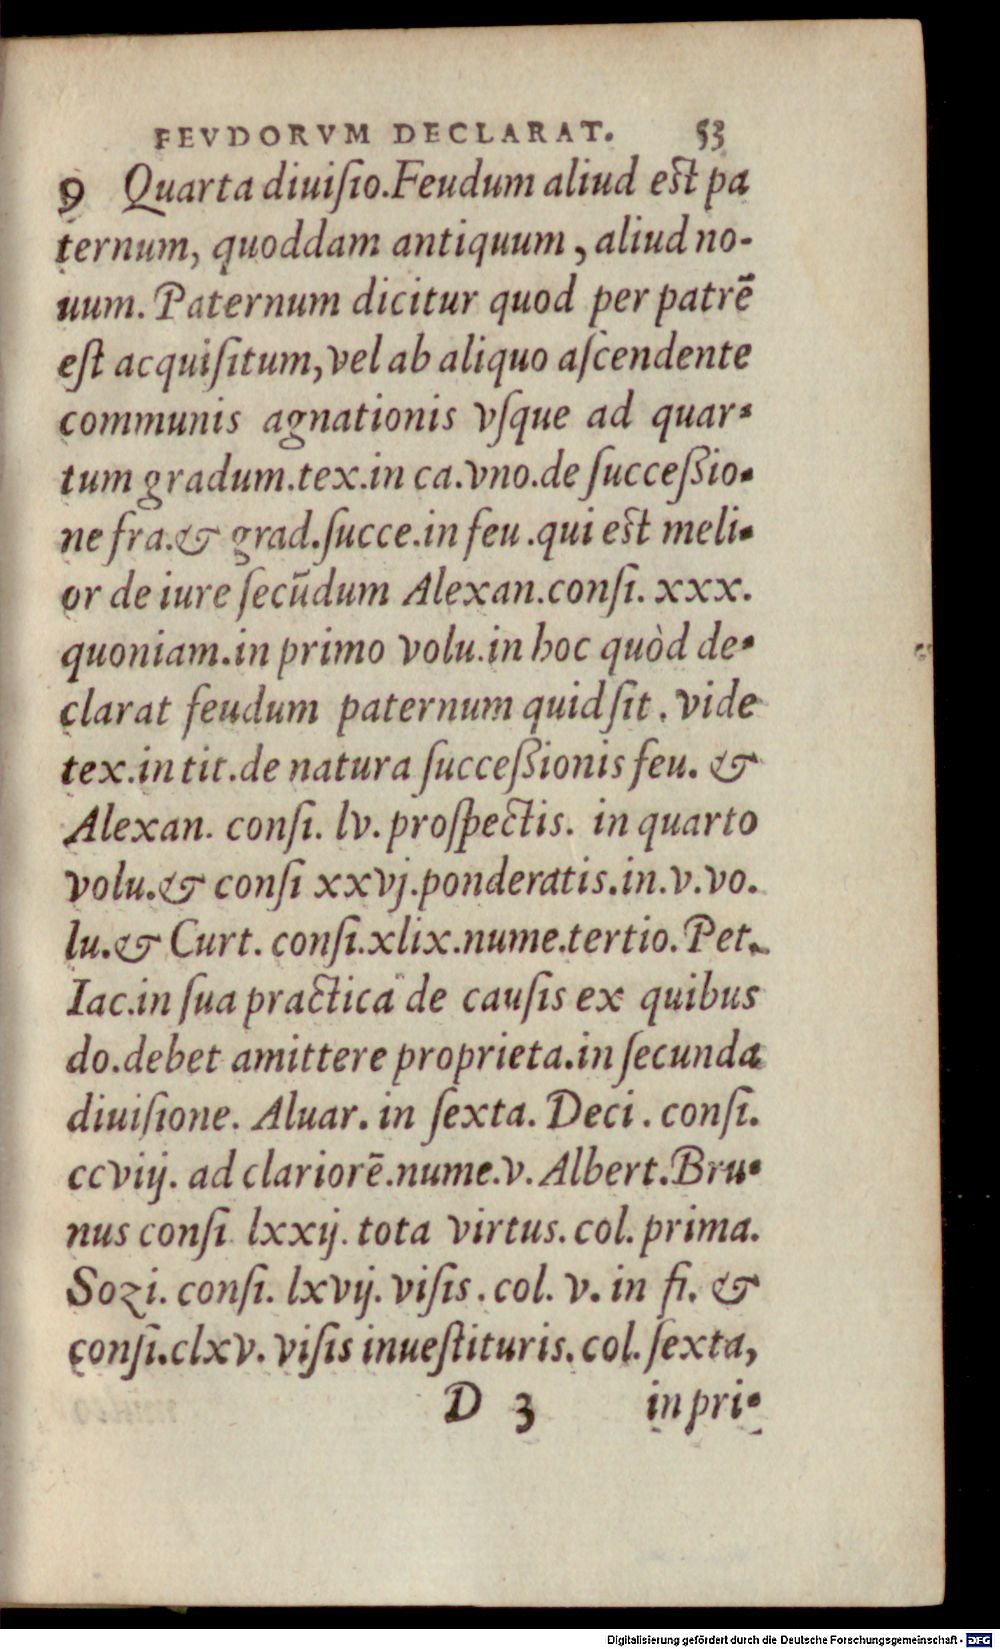 FEVDORVM DECLARAT. 53
9 Quarta diuiſio.Feudum aliud est pa
ternum, quoddam antiquum, aliud no-
uum. Paternum dicitur quod per patrē
eſt acquiſitum, vel ab aliquo aſcendente
communis agnationis vſque ad quar-
tum gradum.tex.in ca.vno.de ſucceßio-
ne fra.& grad.ſucce.in feu.qui est meli-
or de iure ſecūdum Alexan.conſi. xxx.
quoniam.in primo volu.in hoc quòd de-
clarat feudum paternum quid ſit. vide
tex.in tit.de natura ſucceßionis feu. &
Alexan. conſi. lv. proſpectis. in quarto
volu.& conſi xxvj.ponderatis.in.v.vo.
lu.& Curt. conſi.xlix.nume.tertio. Pet.
Iac.in ſua practica de cauſis ex quibus
do.debet amittere proprieta.in ſecunda
diuiſione. Aluar. in ſexta. Deci. conſi.
ccviij. ad clariorē.nume.v. Albert.Bru-
nus conſi lxxij. tota virtus. col. prima.
Sozi. conſi. lxvij. viſis. col. v. in fi. &
conſi.clxv. viſis inueſtituris. col. ſexta,
D 3 in pri-
Digitalisierung gefördert durch die Deutsche Forschungsgemeinschaft - DFG